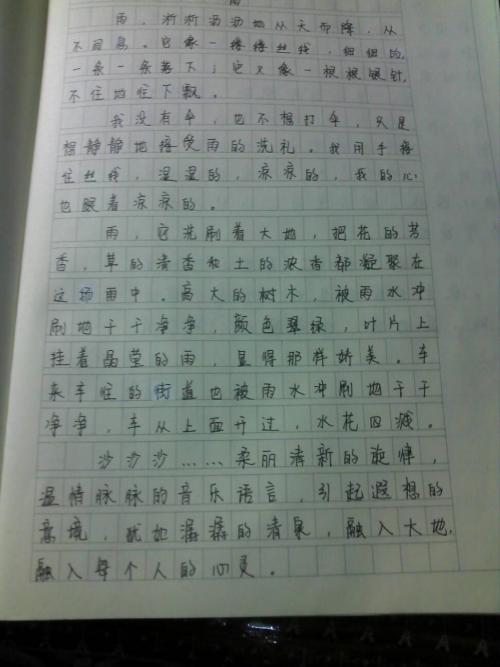 雨
雨，淅淅沥沥地从天而降，从
不间息。它像一缕缕丝线，细细的，
一条一条落下；它又像一根根银针，
不住地往下飘。
我没有伞，也不想打伞，只是
想静静地接受雨的洗礼。我用手接
住丝线，湿湿的，凉凉的，我的心
也跟着凉凉的。
雨，它洗刷着大地，把花的芳
香，草的清香和土的浓香都凝聚在
这场雨中。高大的树木，被雨水冲
刷地干干净净，颜色翠绿，叶片上
挂着晶莹的雨，显得那样娇美。车
来车往的街道也被雨水冲刷地干干
净净，车从上面开过，水花四溅。
沙沙沙……柔丽清新的旋律，
温情脉脉的音乐语言，引起遐想的
意境，犹如潺潺的清泉，融入大地，
融入每个人的心灵。